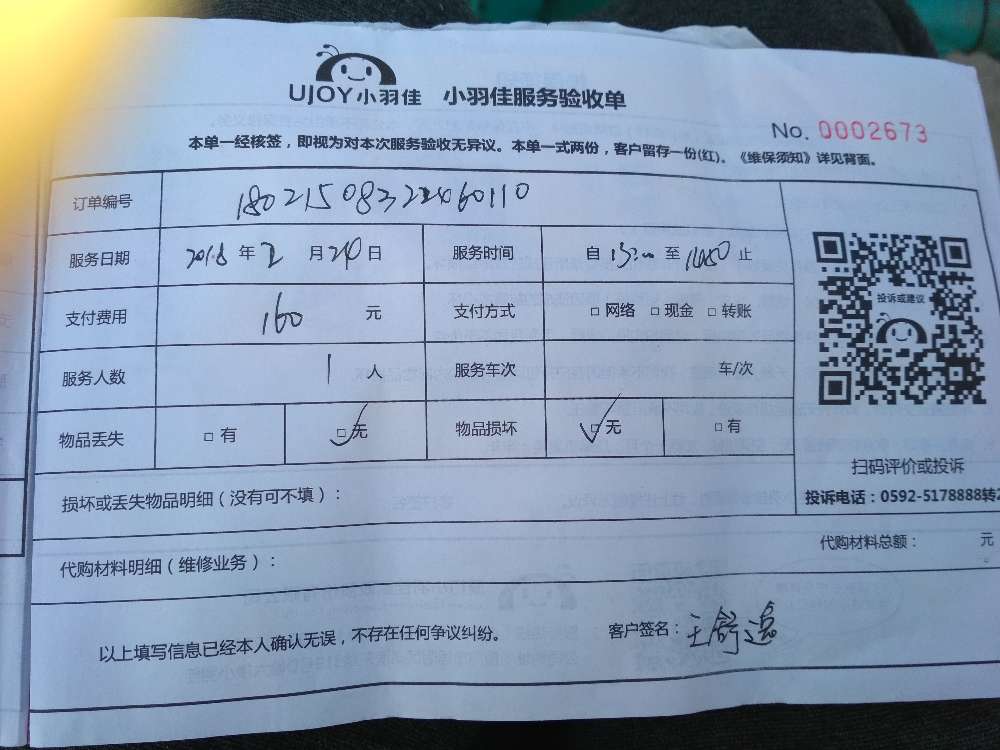 UJOY小羽佳 小羽佳服务验收单
No. 0002673
本单一经核签，即视为对本次服务验收无异议。本单一式两份，客户留存一份(红)。《维保须知》详见背面。
订单编号 180215083222460110
服务日期 2018 年 2 月 20 日 服务时间 自 13:00 至 止
支付费用 160 元 支付方式 □ 网络 □ 现金 □ 转账
投诉或建议
服务人数 1 人 服务车次 车/次
物品丢失 □ 有 ☑ 无 物品损坏 ☑ 无 □ 有
扫码评价或投诉
投诉电话：0592-5178888转2
损坏或丢失物品明细（没有可不填）：
代购材料明细（维修业务）： 代购材料总额： 元
以上填写信息已经本人确认无误，不存在任何争议纠纷。 客户签名：王舒逸